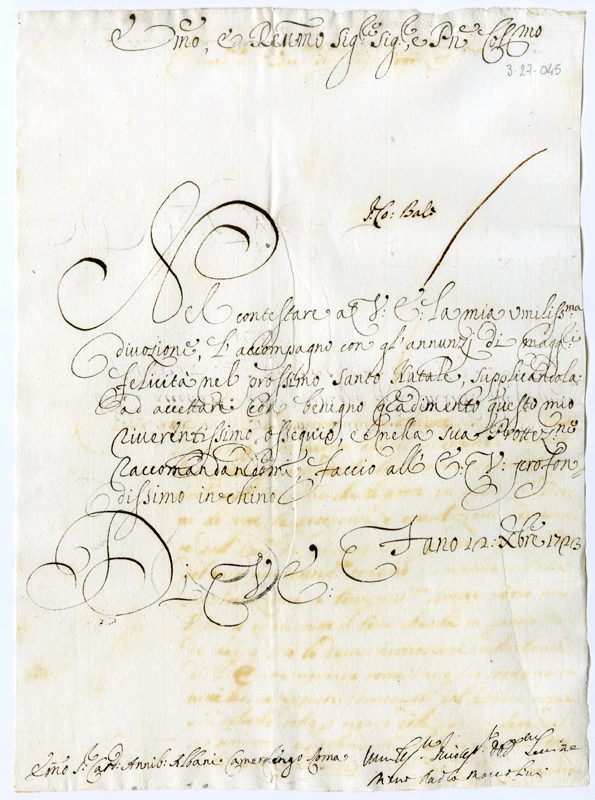 Emo, e Reumo Sig.re Sig.re, e Pñe Col.mo
3-27-045
S. Co: Bali
Nel contestare a V: E: la mia umiliss:ma
divozione, l'accompagno con gl'annunzj di magg:ri
felicità nel prossimo Santo Natale, supplicandola
ad accettare con benigno gradimento questo mio
riverentissimo ossequio, e nella sua Protez:ne
raccomandandomi, faccio all' E: V: profon-
dissimo inchino
Fano 12 Xbre 1723
Di V E:
Emo Sr. Card: Annib: Albani Camerlengo Roma